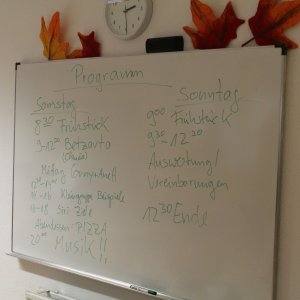 Programm
Samstag
8 30 Frühstück
9-12 30 Betzavta
Mittag
14-16 Kleingruppe Beispiele
16-18
Abendessen PIZZA
20 00 Musik!!
Sonntag
9 00 Frühstück
9 30 - 12 30
Auswertung/
Vereinbarungen
12 30 Ende